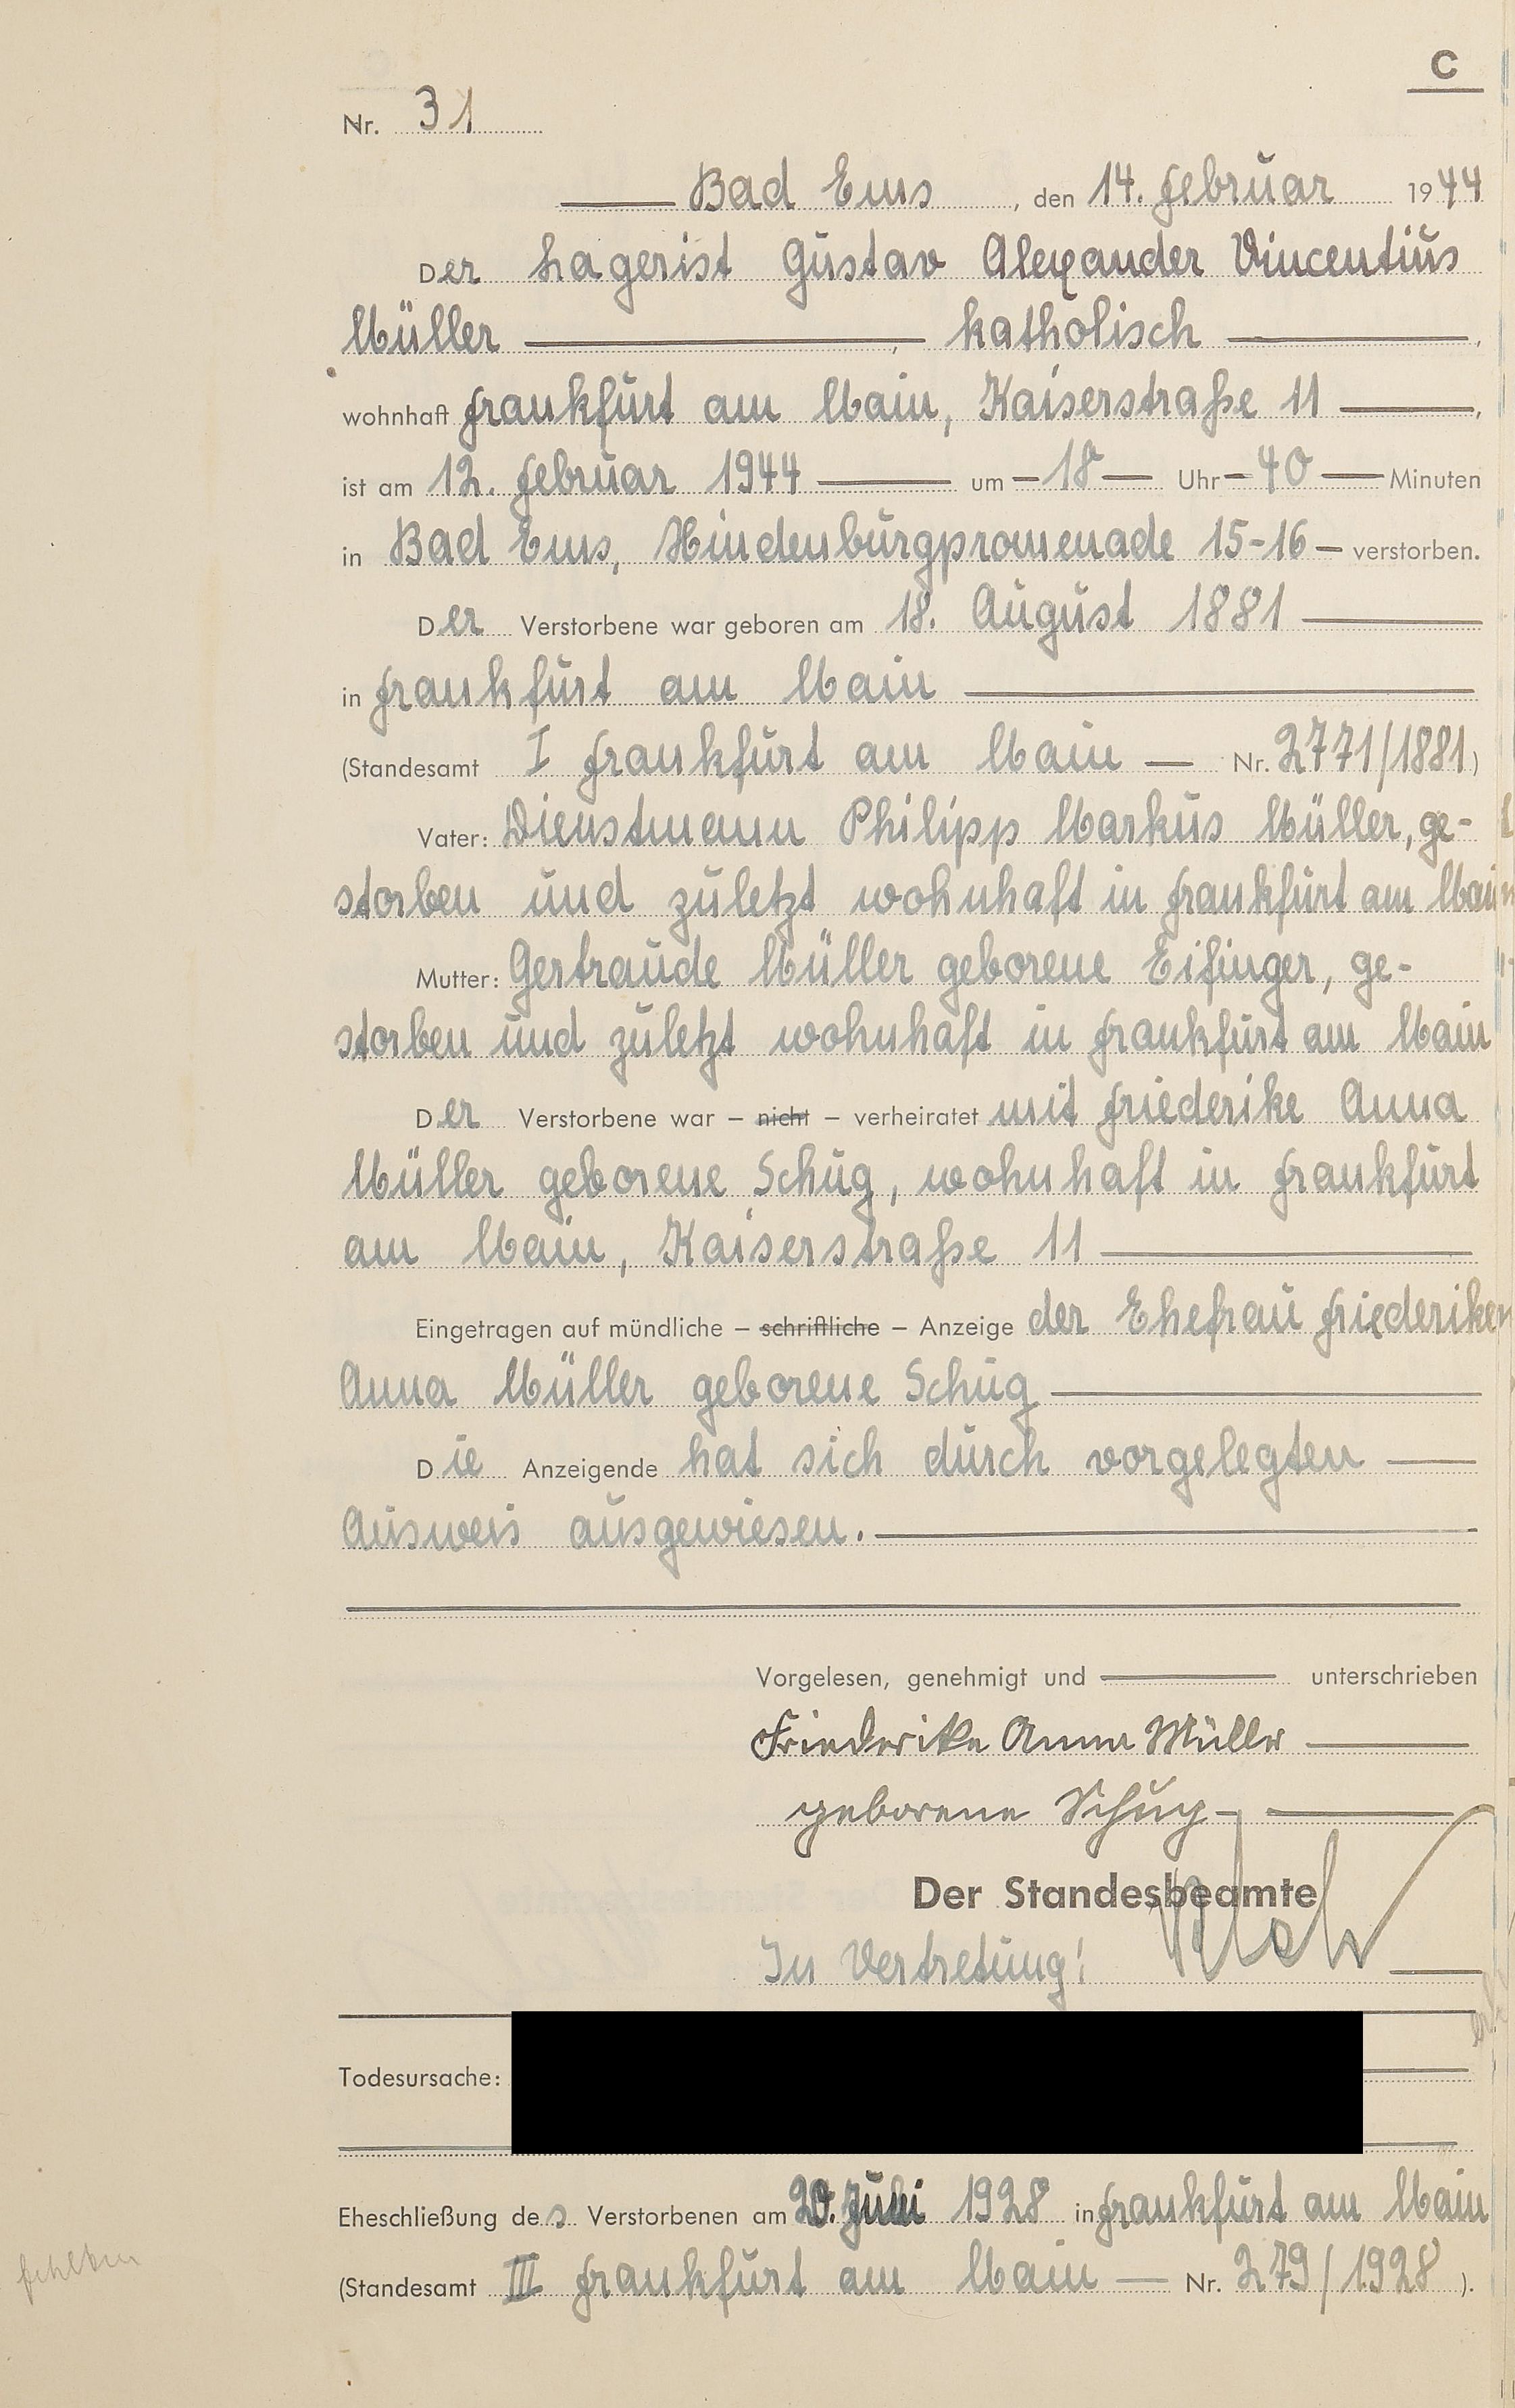 C
Nr. 31
Bad Ems, den 14. Februar 1944
Der Lagerist Gustav Alexander Vincentius
Müller, katholisch,
wohnhaft Frankfurt am Main, Kaiserstraße 11,
ist am 12. Februar 1944 um 18 Uhr 40 Minuten
in Bad Ems, Hindenburgpromenade 15-16 verstorben.
Der Verstorbene war geboren am 18. August 1881
in Frankfurt am Main
(Standesamt I Frankfurt am Main Nr. 2771/1881)
Vater: Dienstmann Philipp Markus Müller, ge-
storben und zuletzt wohnhaft in Frankfurt am Main
Mutter: Gertraude Müller geborene Eifinger, ge-
storben und zuletzt wohnhaft in Frankfurt am Main
Der Verstorbene war – nicht – verheiratet mit Friederike Anna
Müller geborene Schug, wohnhaft in Frankfurt
am Main, Kaiserstraße 11
Eingetragen auf mündliche – schriftliche – Anzeige der Ehefrau Friederiken
Anna Müller geborene Schug
Die Anzeigende hat sich durch vorgelegten
Ausweis ausgewiesen.
Vorgelesen, genehmigt und unterschrieben
Friederike Anna Müller
geborene Schug
Der Standesbeamte
In Vertretung!
Todesursache:
Eheschließung des Verstorbenen am 20. Juni 1928 in Frankfurt am Main
(Standesamt III Frankfurt am Main Nr. 279/1928).